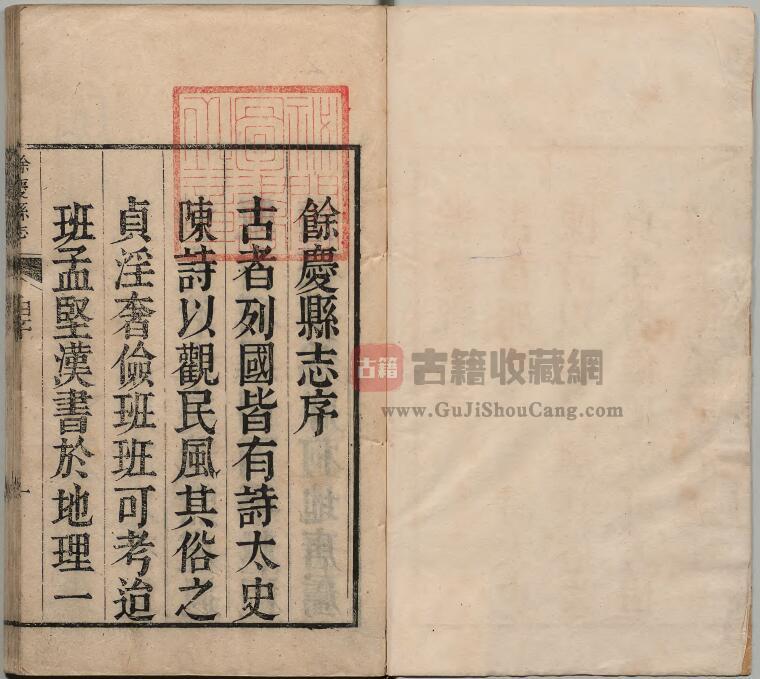 餘慶縣志序
古者列國皆有詩太史
陳詩以觀民風其俗之
貞淫奢儉班班可考迨
班孟堅漢書於地理一
餘慶縣志
一
古籍
古籍收藏網
www.GuJiShouCang.com